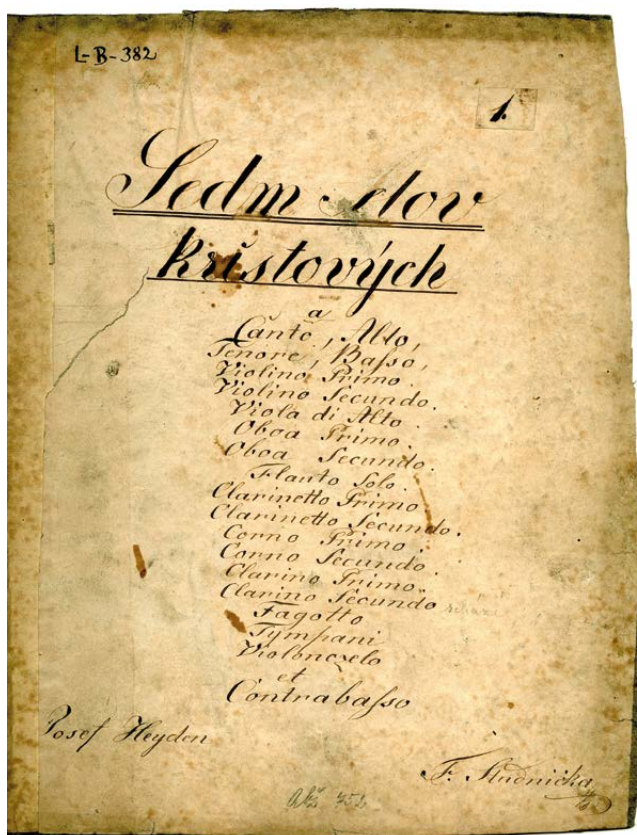 L-B-382
1.
Sedm slov
kristových
a
Canto, Alto,
Tenore, Baſso,
Violino Primo.
Violino Secundo.
Viola di Alto.
Oboa Primo.
Oboa Secundo.
Flauto Solo.
Clarinetto Primo
Clarinetto Secundo.
Corno Primo.
Corno Secundo.
Clarino Primo.
Clarino Secundo
Fagotto
Tympani
Violonczelo
et
Contrabaſso
Josef Heyden
F. Studnička